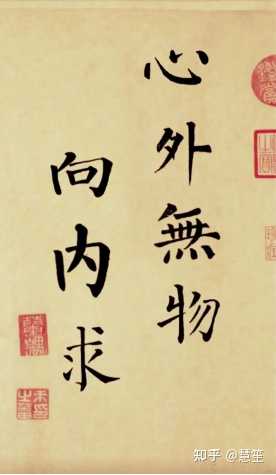 心外無物
向内求
知乎 @慧笙